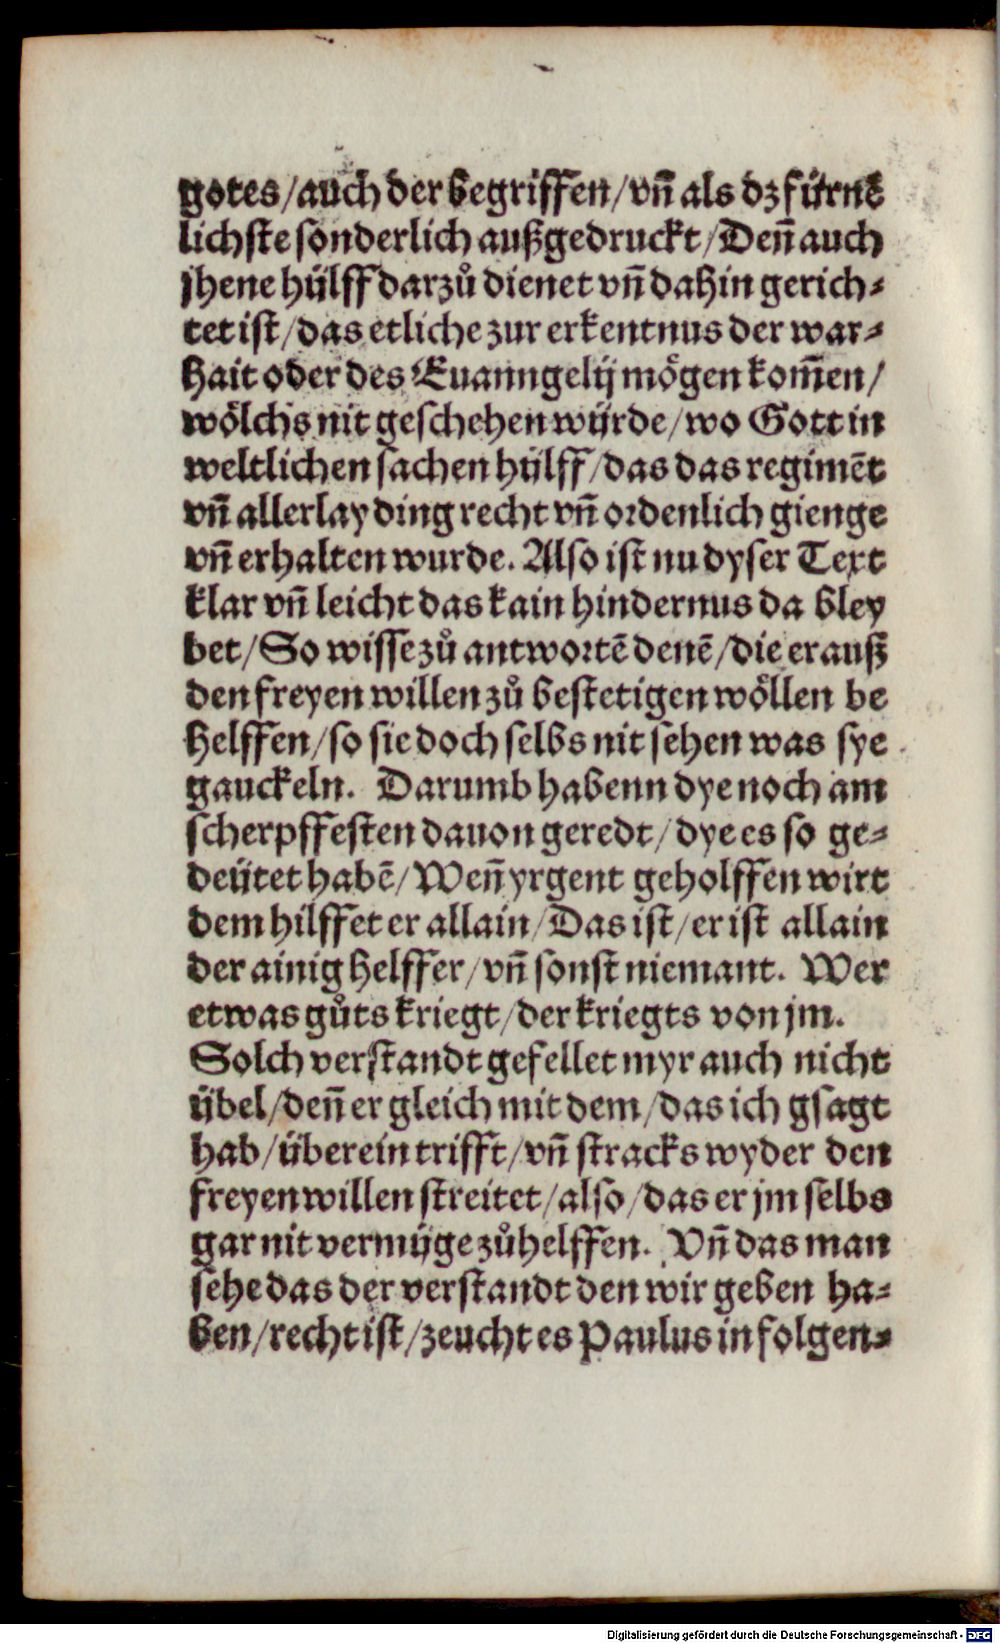 gotes/auch der begriffen/vñ als dz fürnē
lichste sonderlich außgedruckt/Deñ auch
jhene hülff darzů dienet vñ dahin gerich⸗
tet ist/das etliche zur erkentnus der war⸗
hait oder des Euanngelij mögen kom̃en/
wölchs nit geschehen würde/wo Gott in
weltlichen sachen hülff/das das regimēt
vñ allerlay ding recht vñ ordenlich gienge
vñ erhalten wurde. Also ist nu dyser Text
klar vñ leicht das kain hindernus da bley
bet/So wisse zů antwortē denē/die er auß
den freyen willen zů bestetigen wöllen be
helffen/so sie doch selbs nit sehen was sye
gauckeln. Darumb habenn dye noch am
scherpffesten dauon geredt/dye es so ge⸗
deütet habē/Weñ yrgent geholffen wirt
dem hilffet er allain/Das ist/er ist allain
der ainig helffer/vñ sonst niemant. Wer
etwas gůts kriegt/der kriegts von jm.
Solch verstandt gefellet myr auch nicht
übel/deñ er gleich mit dem/das ich gsagt
hab/überein trifft/vñ stracks wyder den
freyen willen streitet/also/das er jm selbs
gar nit vermüge zů helffen. Vñ das man
sehe das der verstandt den wir geben ha⸗
ben/recht ist/zeucht es Paulus in folgen⸗
Digitalisierung gefördert durch die Deutsche Forschungsgemeinschaft - DFG